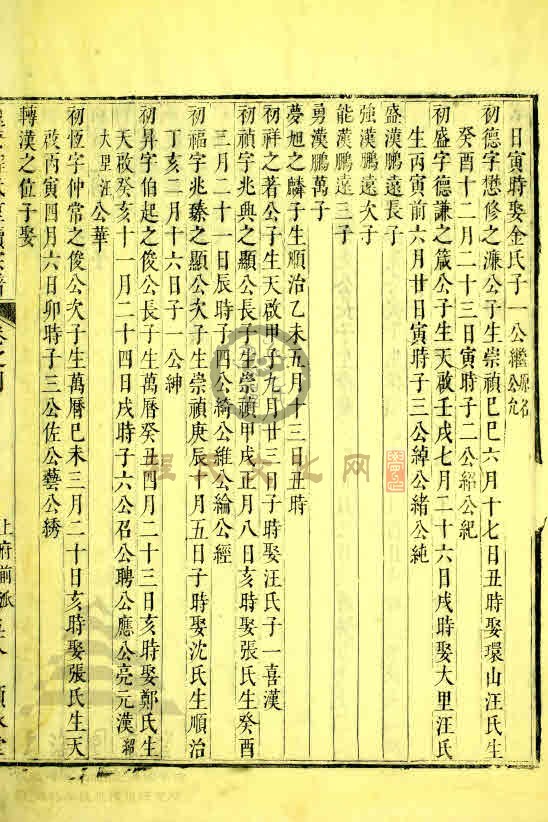 日寅時娶金氏子一公繼原名公允
初德字懋修之濂公子生崇禎己巳六月十七日丑時娶環山汪氏生
癸酉十二月二十三日寅時子二公紹公紀
初盛字德謙之箴公子生天啟壬戌七月二十六日戌時娶大里汪氏
生丙寅前六月廿日寅時子三公綽公緒公純
盛漢鵬遠長子
強漢鵬遠次子
能漢鵬遠三子
勇漢鵬萬子
夢旭之麟子生順治乙未五月十三日丑時
初祥之著公子生天啟甲子九月廿三日子時娶汪氏子一喜漢
初禎字兆興之顯公長子生崇禎甲戌正月八日亥時娶張氏生癸酉
三月二十一日辰時子四公綺公維公綸公經
初福字兆臻之顯公次子生崇禎庚辰十月五日子時娶沈氏生順治
丁亥二月十六日子一公紳
初昇字伯起之俊公長子生萬曆癸丑四月二十三日亥時娶鄭氏生
天啟癸亥十一月二十四日戌時子六公召公聘公應公亮元漢
大里汪公華
初恆字仲常之俊公次子生萬曆己未三月二十日亥時娶張氏生天
啟丙寅四月六日卯時子三公佐公藝公綉
轉漢之位子娶
上府前派
程氏文化网